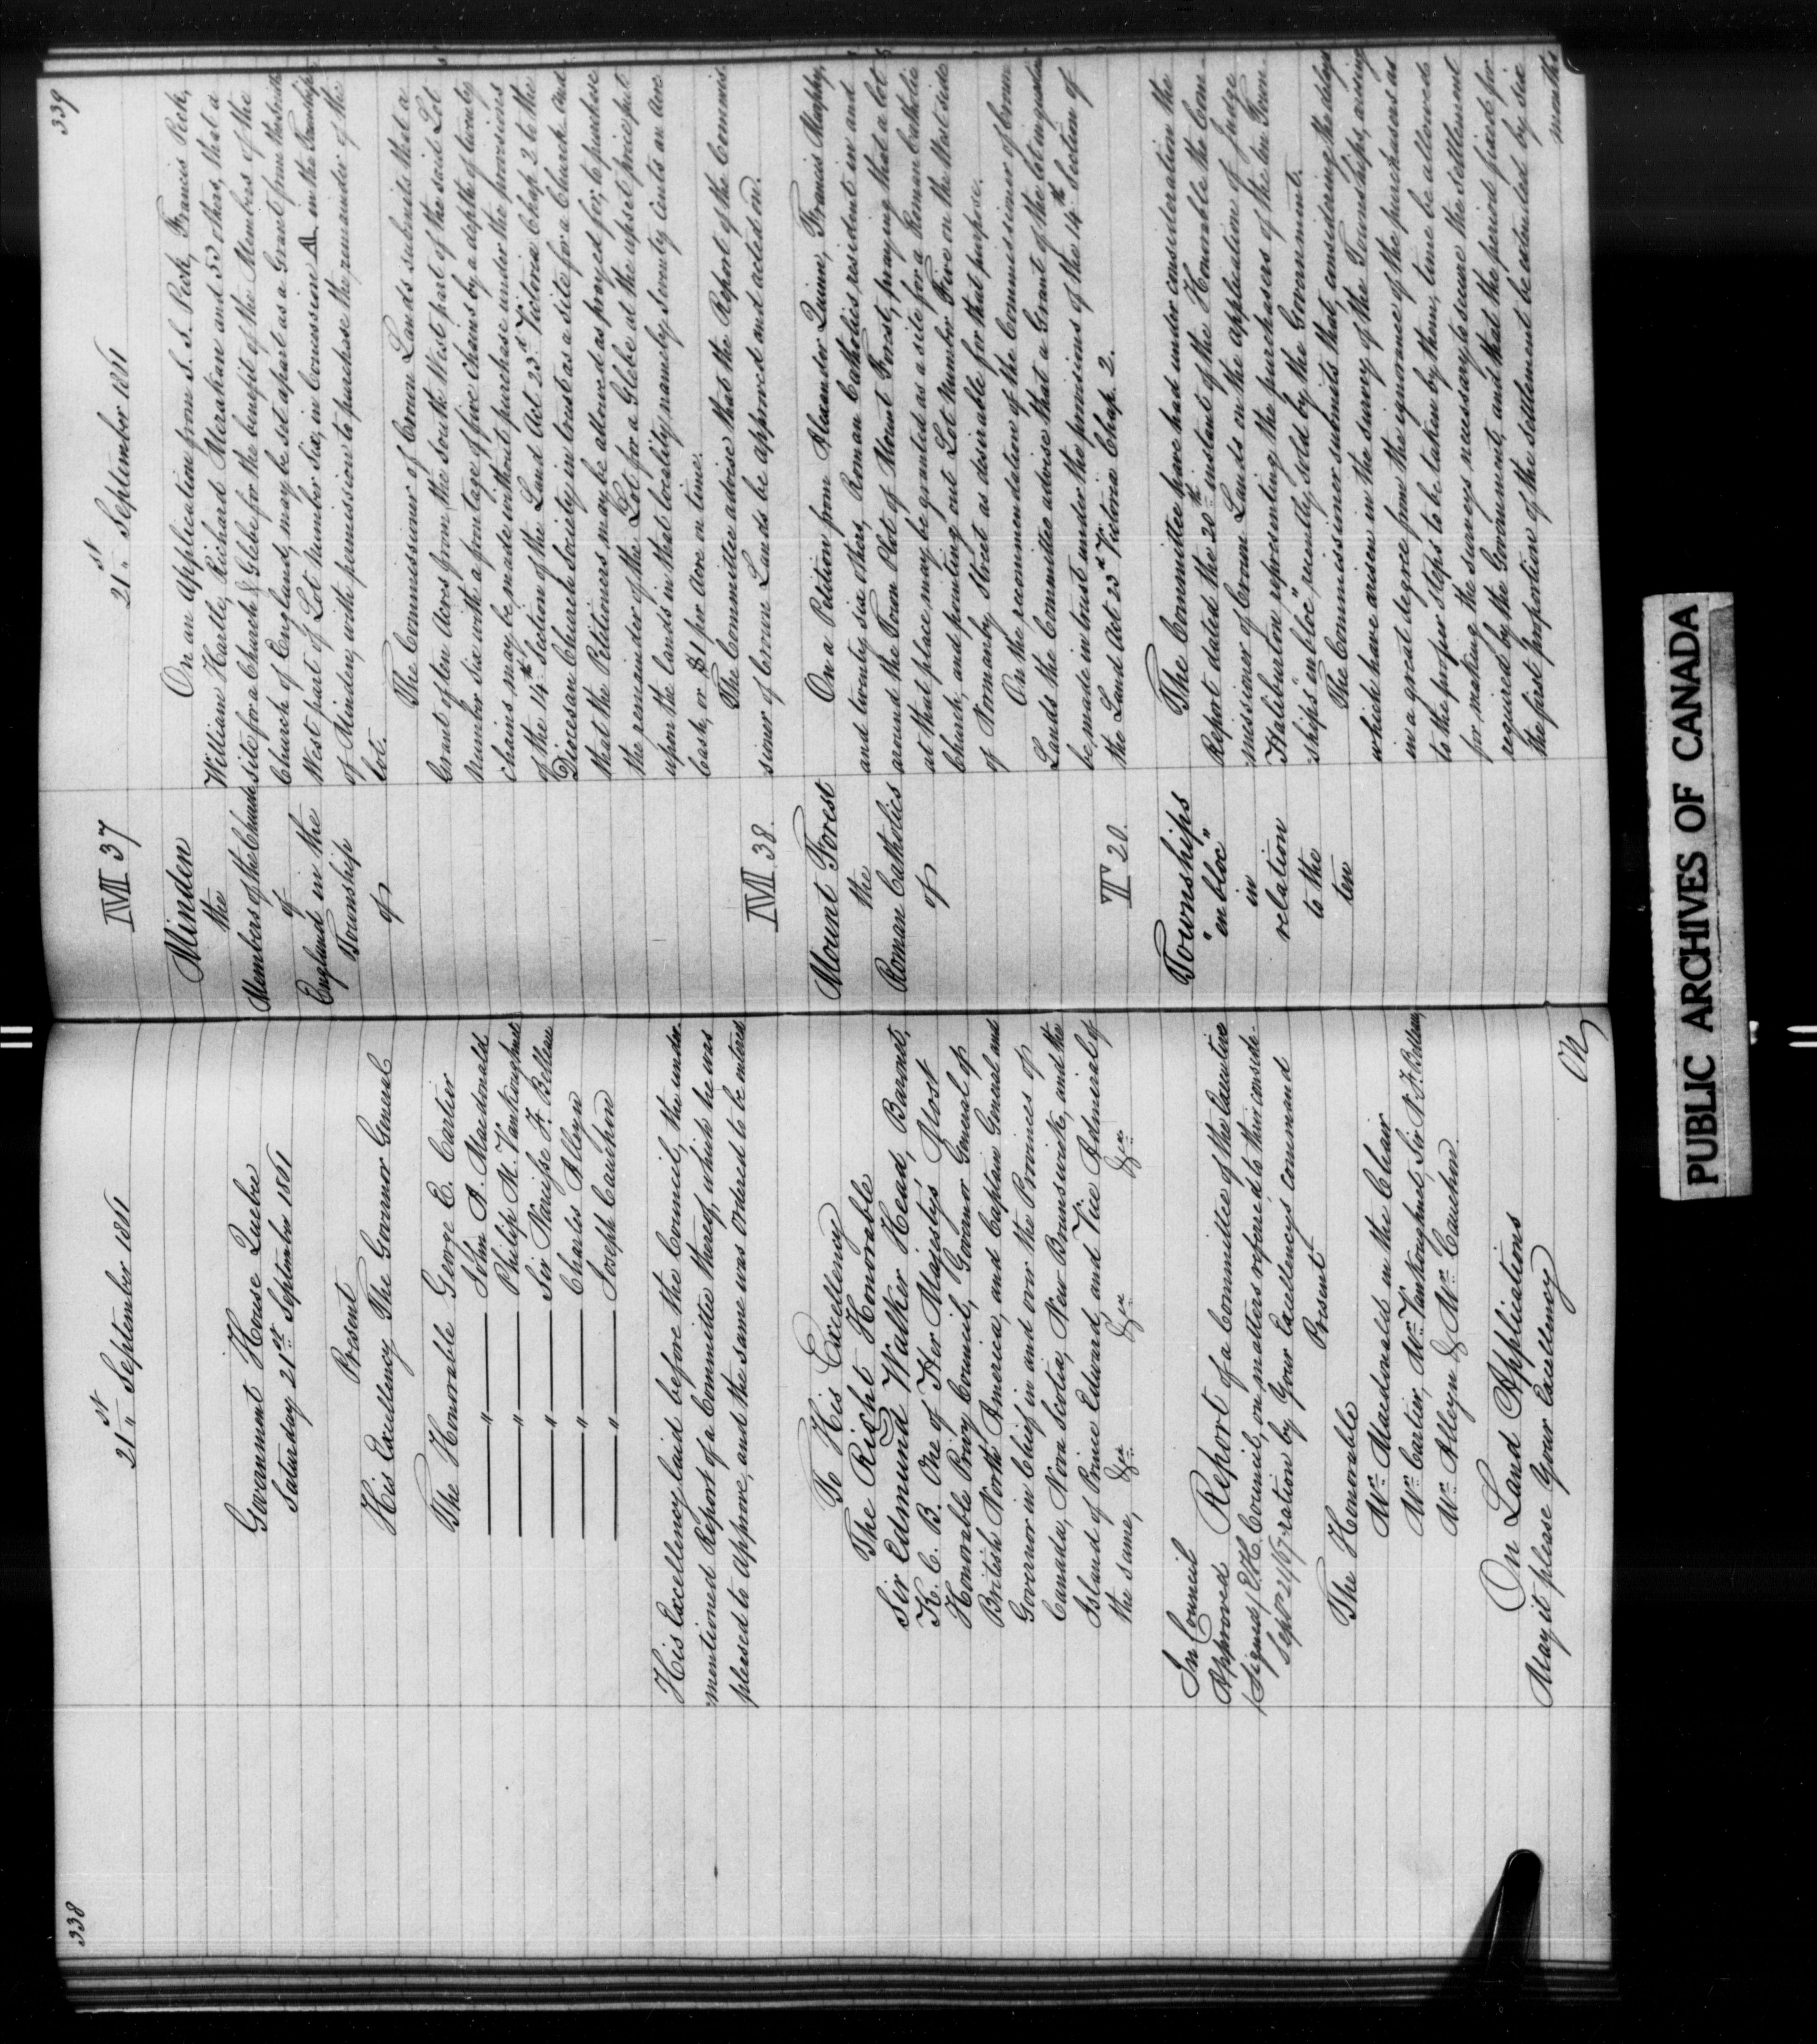 338
21st September 1861
Government House Quebec
Saturday 21st September 1861
Present
His Excellency The Governor General
The Honorable George E. Cartier
" John A. Macdonald
" Philip M. Vankoughnet
" Sir Narcisse F. Belleau
" Charles Alleyn
" Joseph Cauchon
His Excellency laid before the Council, the under
mentioned Report of a Committee thereof, which he was
pleased to Approve, and the same was Ordered to be entered
To His Excellency
The Right Honorable
Sir Edmund Walker Head, Baronet,
K. C. B. One of Her Majesty's Most
Honorable Privy Council, Governor General of
British North America, and Captain General and
Governor in Chief in and over the Provinces of
Canada, Nova Scotia, New Brunswick, and the
Island of Prince Edward, and Vice Admiral of
the same, &ca &ca &ca
In Council
Approved
(Signed) E.H.
Sepr 21/67
Report of a Committee of the Executive
Council, on matters referred to their conside-
ration by Your Excellency's command
Present
The Honorable
Mr. Macdonald in the Chair
Mr. Cartier, Mr. Vankoughnet, Sir N. F. Belleau,
Mr. Alleyn & Mr. Cauchon
On Land Applications
May it please Your Excellency
On
339
21st September 1861
M 37
Minden
the
Members of the Church
of
England in the
Township
of
On an Application from S. S. Peck, Francis Peck,
William Hartle, Richard Merakan and 53 others, that a
site for a Church & Glebe for the benefit of the Members of the
Church of England, may be set apart as a Grant from the
West part of Lot Number Six, in Concession A in the Township
of Minden, with permission to purchase the remainder of the
Lot.
The Commissioner of Crown Lands submits that a
Grant of ten Acres from the South West part of the said Lot
Number Six with a frontage of five Chains by a depth of twenty
chains may be made without purchase under the provisions
of the 14th Section of the Land Act 23rd Victoria Chap 2 to the
Diocesan Church Society in trust as a site for a Church and
that the Petitioners may be allowed as prayed for, to purchase
the remainder of the Lot for a Glebe at the upset price put
upon the lands in that locality, namely Seventy Cents an Acre
Cash, or $1 per Acre on time.
The Committee advise that the Report of the Commis-
sioner of Crown Lands be approved and acted on.
M 38.
Mount Forest
the
Roman Catholics
of
On a Petition from Alexander Quinn, Francis Murphy,
and twenty six others, Roman Catholics, resident in and
around the Town Plot of Mount Forest, praying that a lot
at that place may be granted as a site for a Roman Catholic
Church, and pointing out Lot Number Five on the West side
of Normanby Street as desirable for that purpose.
On the recommendation of the Commissioner of Crown
Lands the Committee advise that a Grant of the Lot in question
be made in trust under the provisions of the 14th Section of
the Land Act 23rd Victoria Chap. 2.
T 20.
Townships
"en bloc"
in
relation
to the
ten
The Committee have had under consideration the
Report dated the 20th instant of the Honorable the Com-
missioner of Crown Lands on the application of Judge
Haliburton representing the purchasers of the ten Town-
ships "en bloc", recently sold by the Government.
The Commissioner submits that, considering the delays
which have arisen in the survey of the Townships, arising
in a great degree from the ignorance of the purchasers as
to the proper steps to be taken by them, time be allowed
for making the surveys necessary to secure the settlement
required by the Government, and that the period fixed for
the first proportion of the settlement be extended by six
months
PUBLIC ARCHIVES OF CANADA